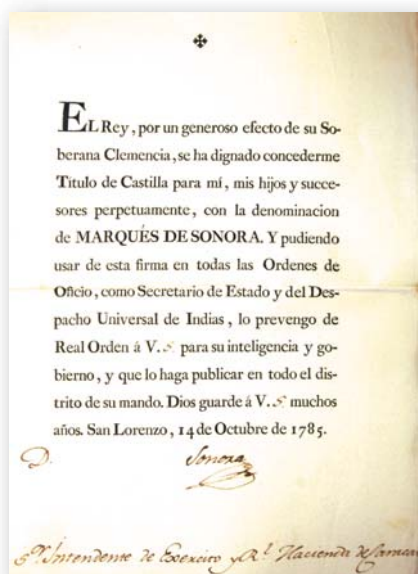 EL Rey, por un generoso efecto de su So-
berana Clemencia, se ha dignado concederme
Titulo de Castilla para mí, mis hijos y succe-
sores perpetuamente, con la denominacion
de MARQUÉS DE SONORA. Y pudiendo
usar de esta firma en todas las Ordenes de
Oficio, como Secretario de Estado y del Des-
pacho Universal de Indias, lo prevengo de
Real Orden á V.S. para su inteligencia y go-
bierno, y que lo haga publicar en todo el dis-
trito de su mando. Dios guarde á V.S. muchos
años. San Lorenzo, 14 de Octubre de 1785.
D. Sonora
S.ʳ Intendente de Exercito y R.ˡ Hacienda de Caracas